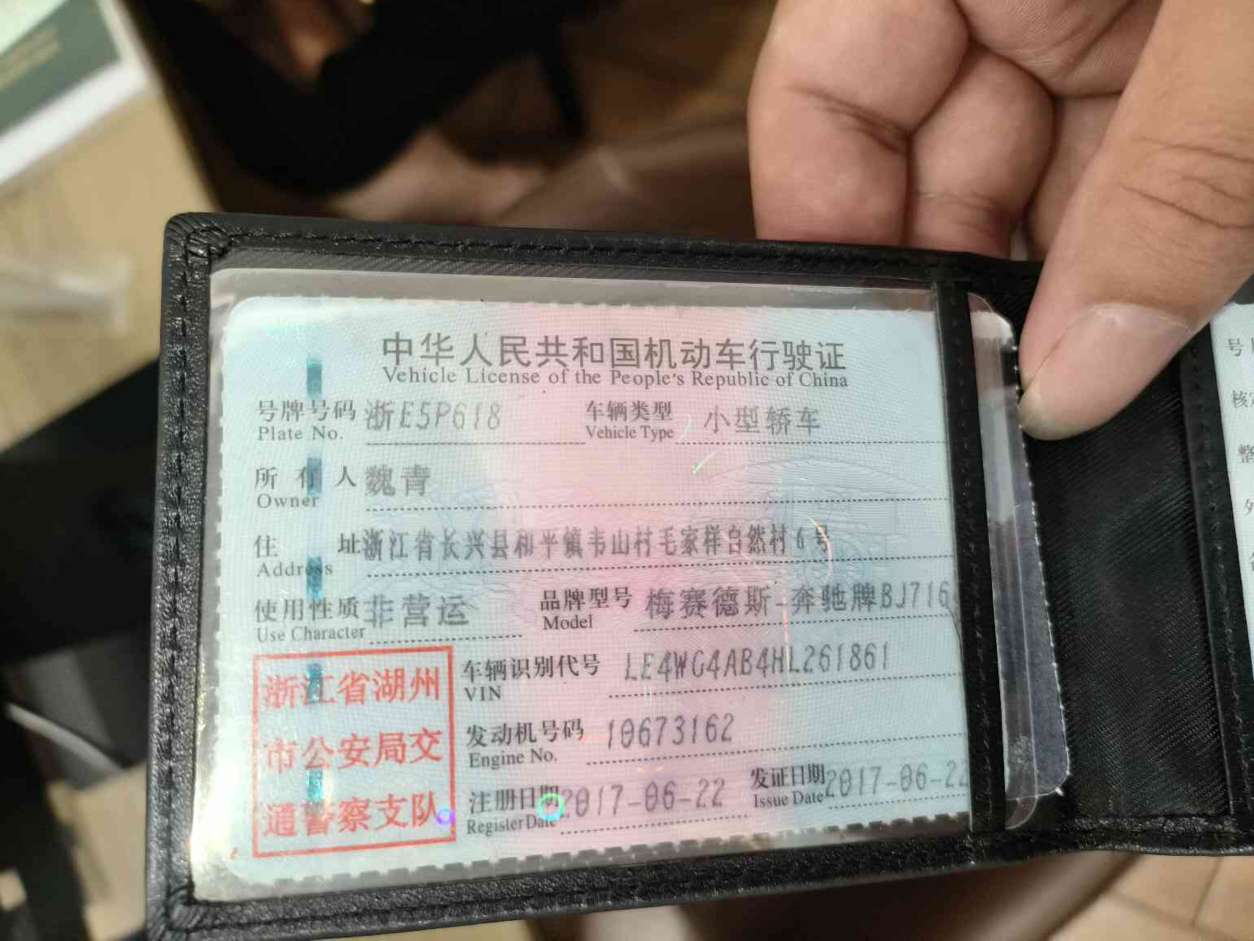 中华人民共和国机动车行驶证
Vehicle License of the People's Republic of China
号牌号码 浙E5P618 车辆类型 小型轿车
Plate No. Vehicle Type
所有人 魏青
Owner
住址 浙江省长兴县和平镇韦山村毛家样自然村6号
Address
使用性质 非营运 品牌型号 梅赛德斯-奔驰牌BJ716
Use Character Model
浙江省湖州
市公安局交
通警察支队
车辆识别代号 LE4WG4AB4HL261861
VIN
发动机号码 10673162
Engine No.
注册日期 2017-06-22 发证日期 2017-06-22
Register Date Issue Date
号
核定
整
外